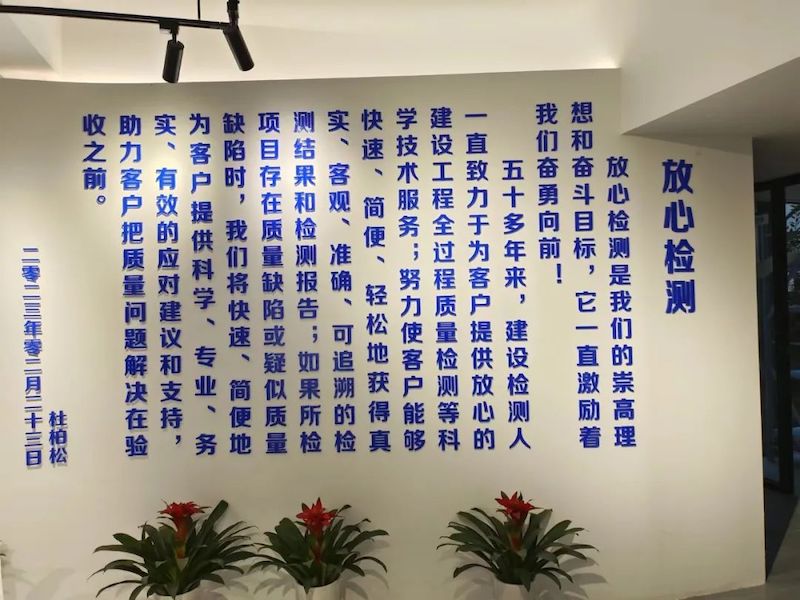 放心检测
放心检测是我们的崇高理
想和奋斗目标，它一直激励着
我们奋勇向前！
五十多年来，建设检测人
一直致力于为客户提供放心的
建设工程全过程质量检测等科
学技术服务；努力使客户能够
快速、简便、轻松地获得真
实、客观、准确、可追溯的检
测结果和检测报告；如果所检
项目存在质量缺陷或疑似质量
缺陷时，我们将快速、简便地
为客户提供科学、专业、务
实、有效的应对建议和支持，
助力客户把质量问题解决在验
收之前。
杜柏松
二零二三年零二月二十三日